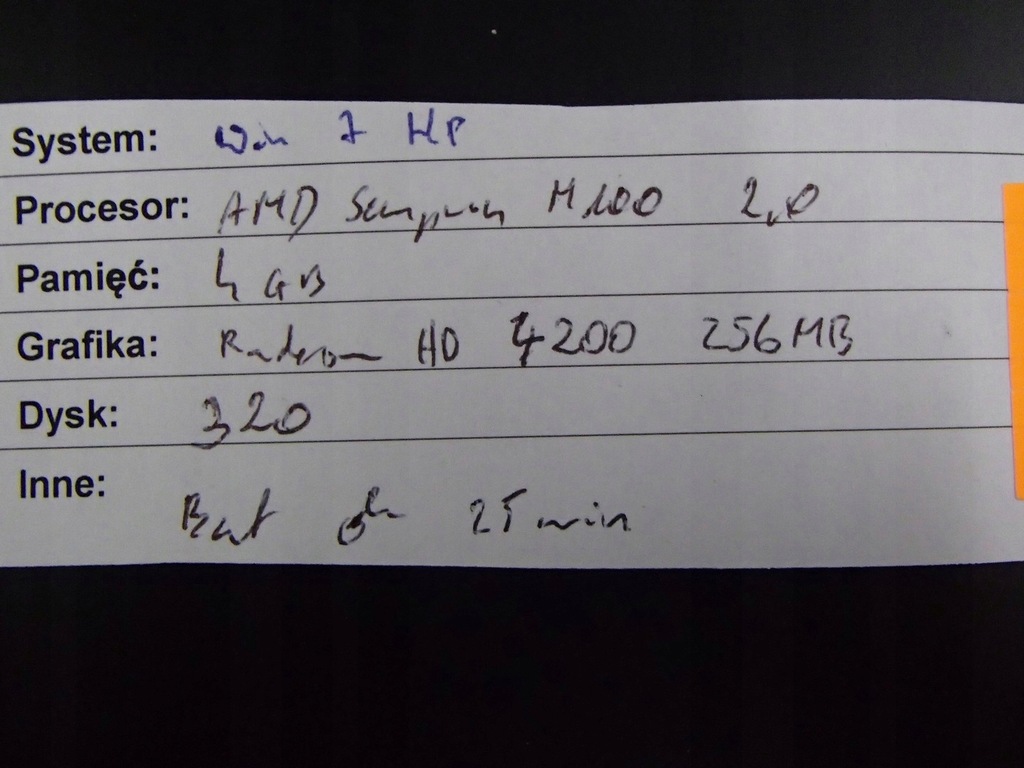 System: Win 7 HP
Procesor: AMD Sempron M100 2,0
Pamięć: 4 GB
Grafika: Radeon HD 4200 256MB
Dysk: 320
Inne:
Bat ok 25 min